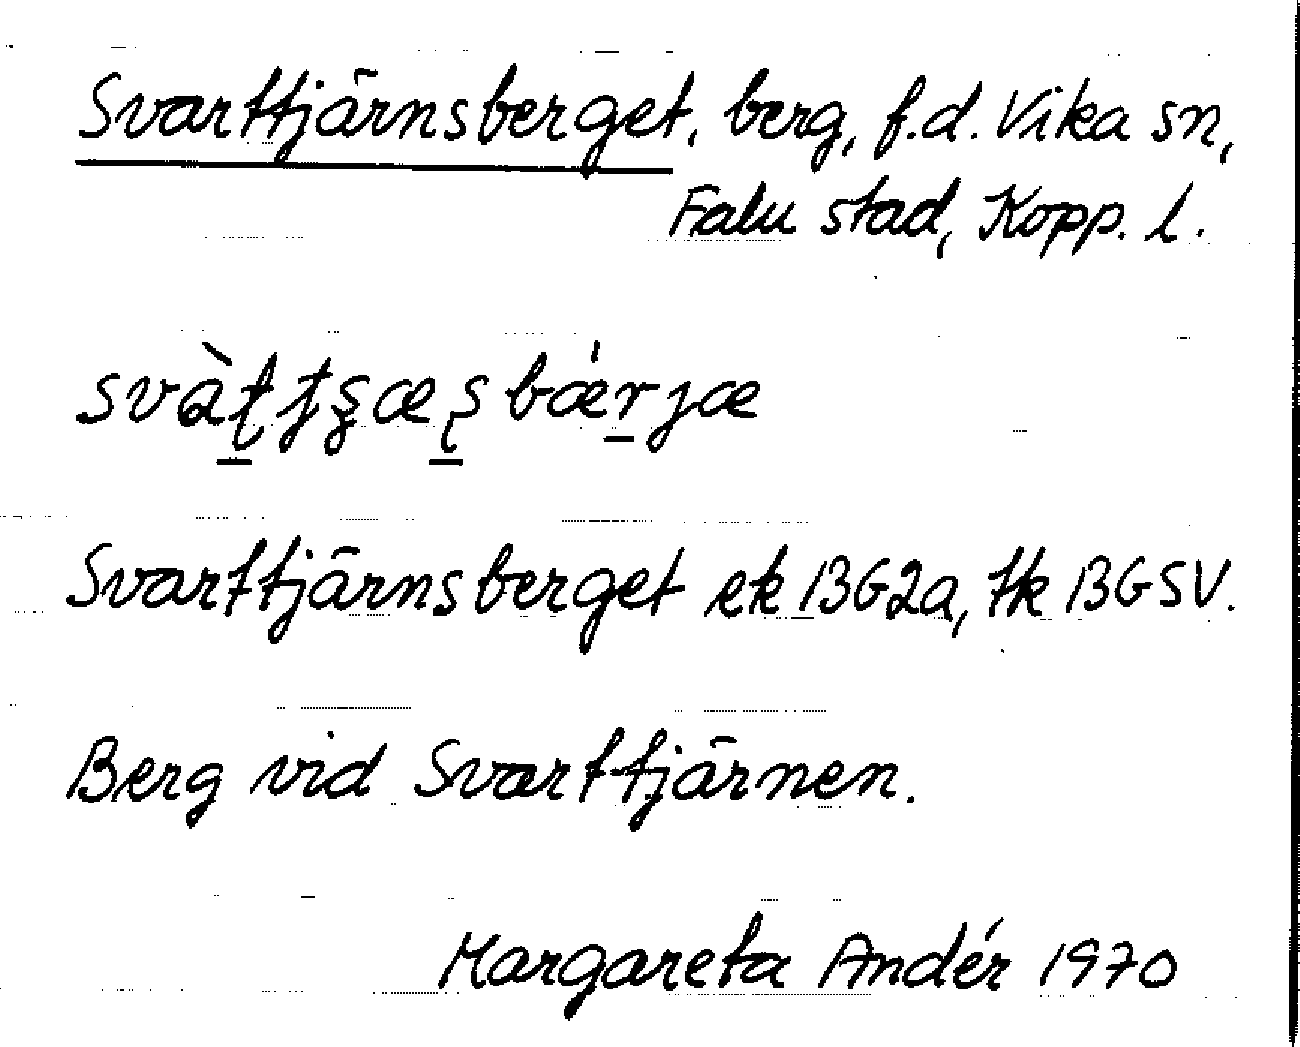 Svarttjärnsberget, berg, f.d. Vika sn,
Falu stad, Kopp. l.
Svarttjärnsberget ek 13G2a, tk 13GSV.
Berg vid Svarttjärnen.
Margareta Andér 1970